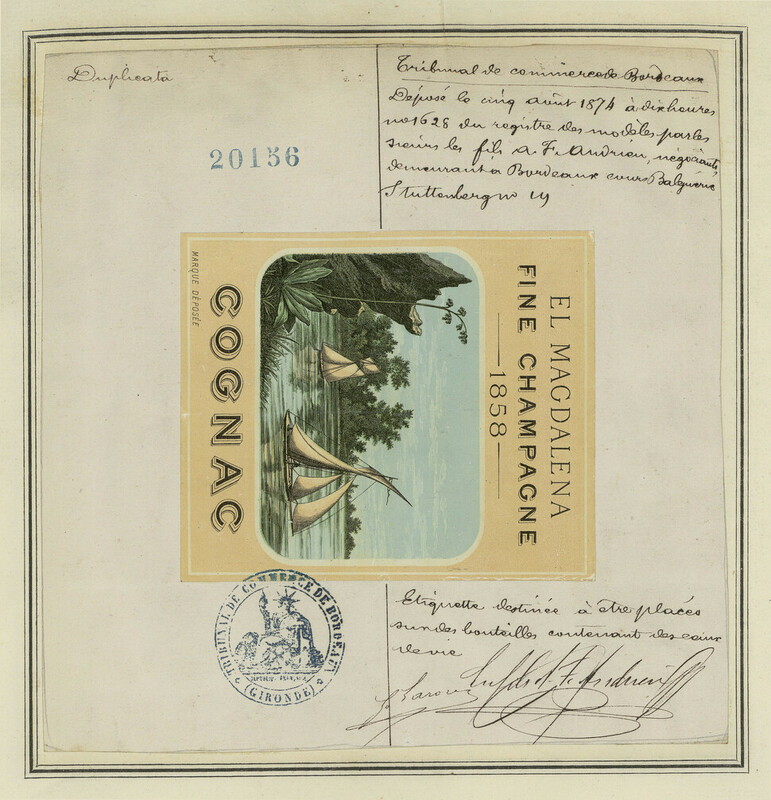 Duplicata
20156
Tribunal de commerce de Bordeaux
Déposé le cinq août 1874 à dix heures
no 1628 du registre des modèles par les
sieurs les fils A. F. Andrieu, négociants,
demeurant à Bordeaux cours Balguerie
Stuttenberg no 19
EL MAGDALENA
FINE CHAMPAGNE
1858
COGNAC
MARQUE DÉPOSÉE
TRIBUNAL DE COMMERCE DE BORDEAUX
(GIRONDE)
Etiquette destinée à être placée
sur des bouteilles contenant des eaux
de vie